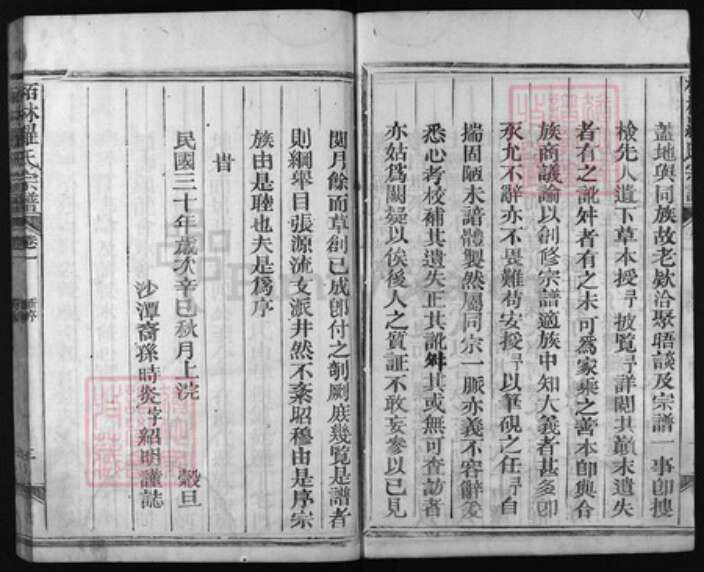 盖地與同族故老欵洽聚晤談及宗譜一事卽搜
檢先人遺下草本授𠃔披覽𠃔詳閱其巔末遺失
者有之訛舛者有之未可爲家乘之善本卽與合
族商議論以創修宗譜適族中知大義者甚多卽
永允不辭亦不畏難苟安授𠃔以筆硯之任𠃔自
揣固陋未諳體製然屬同宗一脈亦義不容辭爰
悉心考校補其遺失正其訛舛其或無可查訪者
亦姑爲闕疑以俟後人之質証不敢妄參以己見
閱月餘而草創已成卽付之剞劂庶幾覽是譜者
則綱舉目張源流支派井然不紊昭穆由是序宗
族由是睦也夫是爲序
旹
民國三十年歲次辛巳秋月上浣 穀旦
沙潭裔孫時炎字紹明謹誌
栢林羅氏宗譜 卷一